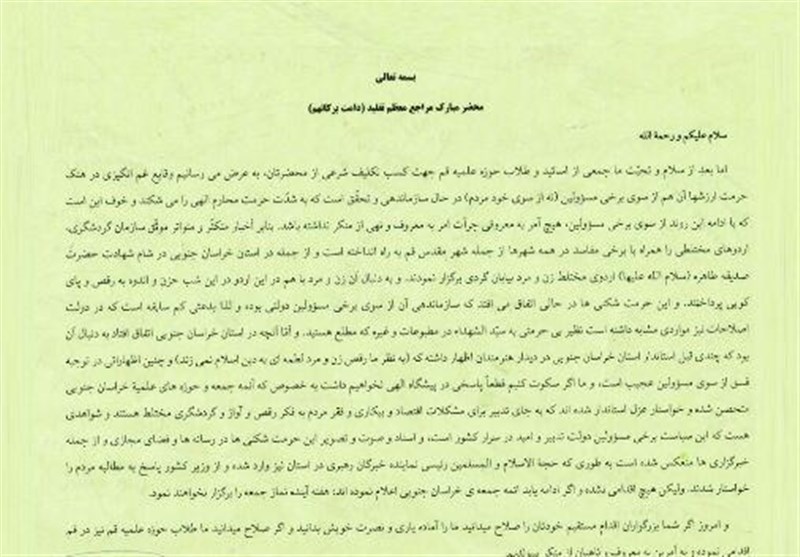 بسمه تعالی
محضر مبارک مراجع معظم تقلید (دامت برکاتهم)
سلام علیکم و رحمة الله
اما بعد از سلام و تحیّت ما جمعی از اساتید و طلاب حوزه علمیه قم جهت کسب تکلیف شرعی از محضرتان، به عرض می رسانیم وقایع غم انگیزی در هتک
حرمت ارزشها آن هم از سوی برخی مسؤولین (نه از سوی خود مردم) در حال سازماندهی و تحقّق است که به شدّت حرمت محارم الهی را می شکند و خوف این است
که با ادامه این روند از سوی برخی مسؤولین، هیچ آمر به معروفی جرأت امر به معروف و نهی از منکر نداشته باشد. بنابر أخبار متکثّر و متواتر موثّق سازمان گردشگری،
اردوهای مختلطی را همراه با برخی مفاسد در همه شهرها از جمله شهر مقدس قم به راه انداخته است و از جمله در استان خراسان جنوبی در شام شهادت حضرت
صدیقه طاهره (سلام الله علیها) اردوی مختلط زن و مرد بیابان گردی برگزار نمودند. و به دنبال آن زن و مرد با هم در این اردو در این شب حزن و اندوه به رقص و پای
کوبی پرداختند. و این حرمت شکنی ها در حالی اتفاق می افتد که سازماندهی آن از سوی برخی مسؤولین دولتی بوده و لذا بدعتی کم سابقه است که در دولت
اصلاحات نیز مواردی مشابه داشته است نظیر بی حرمتی به سیّد الشهداء در مطبوعات و غیره که مطلع هستید. و أمّا آنچه در استان خراسان جنوبی اتفاق افتاد به دنبال آن
بود که چندی قبل استاندار استان خراسان جنوبی در دیدار هنرمندان اظهار داشته که (به نظر ما رقص زن و مرد لطمه ای به دین اسلام نمی زند) و چنین اظهاراتی در توجیه
فسق از سوی مسؤولین عجیب است، و ما اگر سکوت کنیم قطعاً پاسخی در پیشگاه الهی نخواهیم داشت به خصوص که أئمه جمعه و حوزه های علمیة خراسان جنوبی
متحصن شده و خواستار عزل استاندار شده اند که به جای تدبیر برای مشکلات اقتصاد و بیکاری و فقر مردم به فکر رقص و آواز و گردشگری مختلط هستند و شواهدی
هست که این سیاست برخی مسؤولین دولت تدبیر و امید در سراسر کشور است، و اسناد و صوت و تصویر این حرمت شکنی ها در رسانه ها و فضای مجازی و از جمله
خبرگزاری ها منعکس شده است به طوری که حجة الاسلام و المسلمین رئیسی نماینده خبرگان رهبری در استان نیز وارد شده و از وزیر کشور پاسخ به مطالبه مردم را
خواستار شدند. ولیکن هیچ اقدامی نشده و اگر ادامه یابد ائمه جمعه ی خراسان جنوبی اعلام نموده اند: هفته آینده نماز جمعه را برگزار نخواهند نمود.
و امروز اگر شما بزرگواران اقدام مستقیم خودتان را صلاح میدانید ما را آماده یاری و نصرت خویش بدانید و اگر صلاح میدانید ما طلاب حوزه علمیه قم نیز در قم
اقدامی نموده و به آمرین به معروف و ناهیان از منکر بپیوندیم.